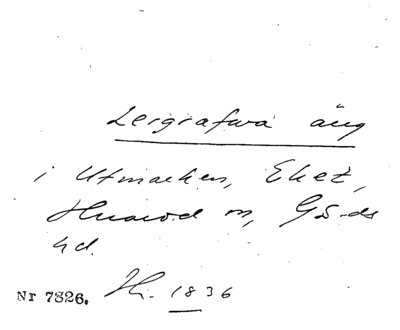 Lergrafwa äng
i Utmarken, Eket,
Huarod m, Gä-ds
hd.
Nr 7826. Jh. 1836